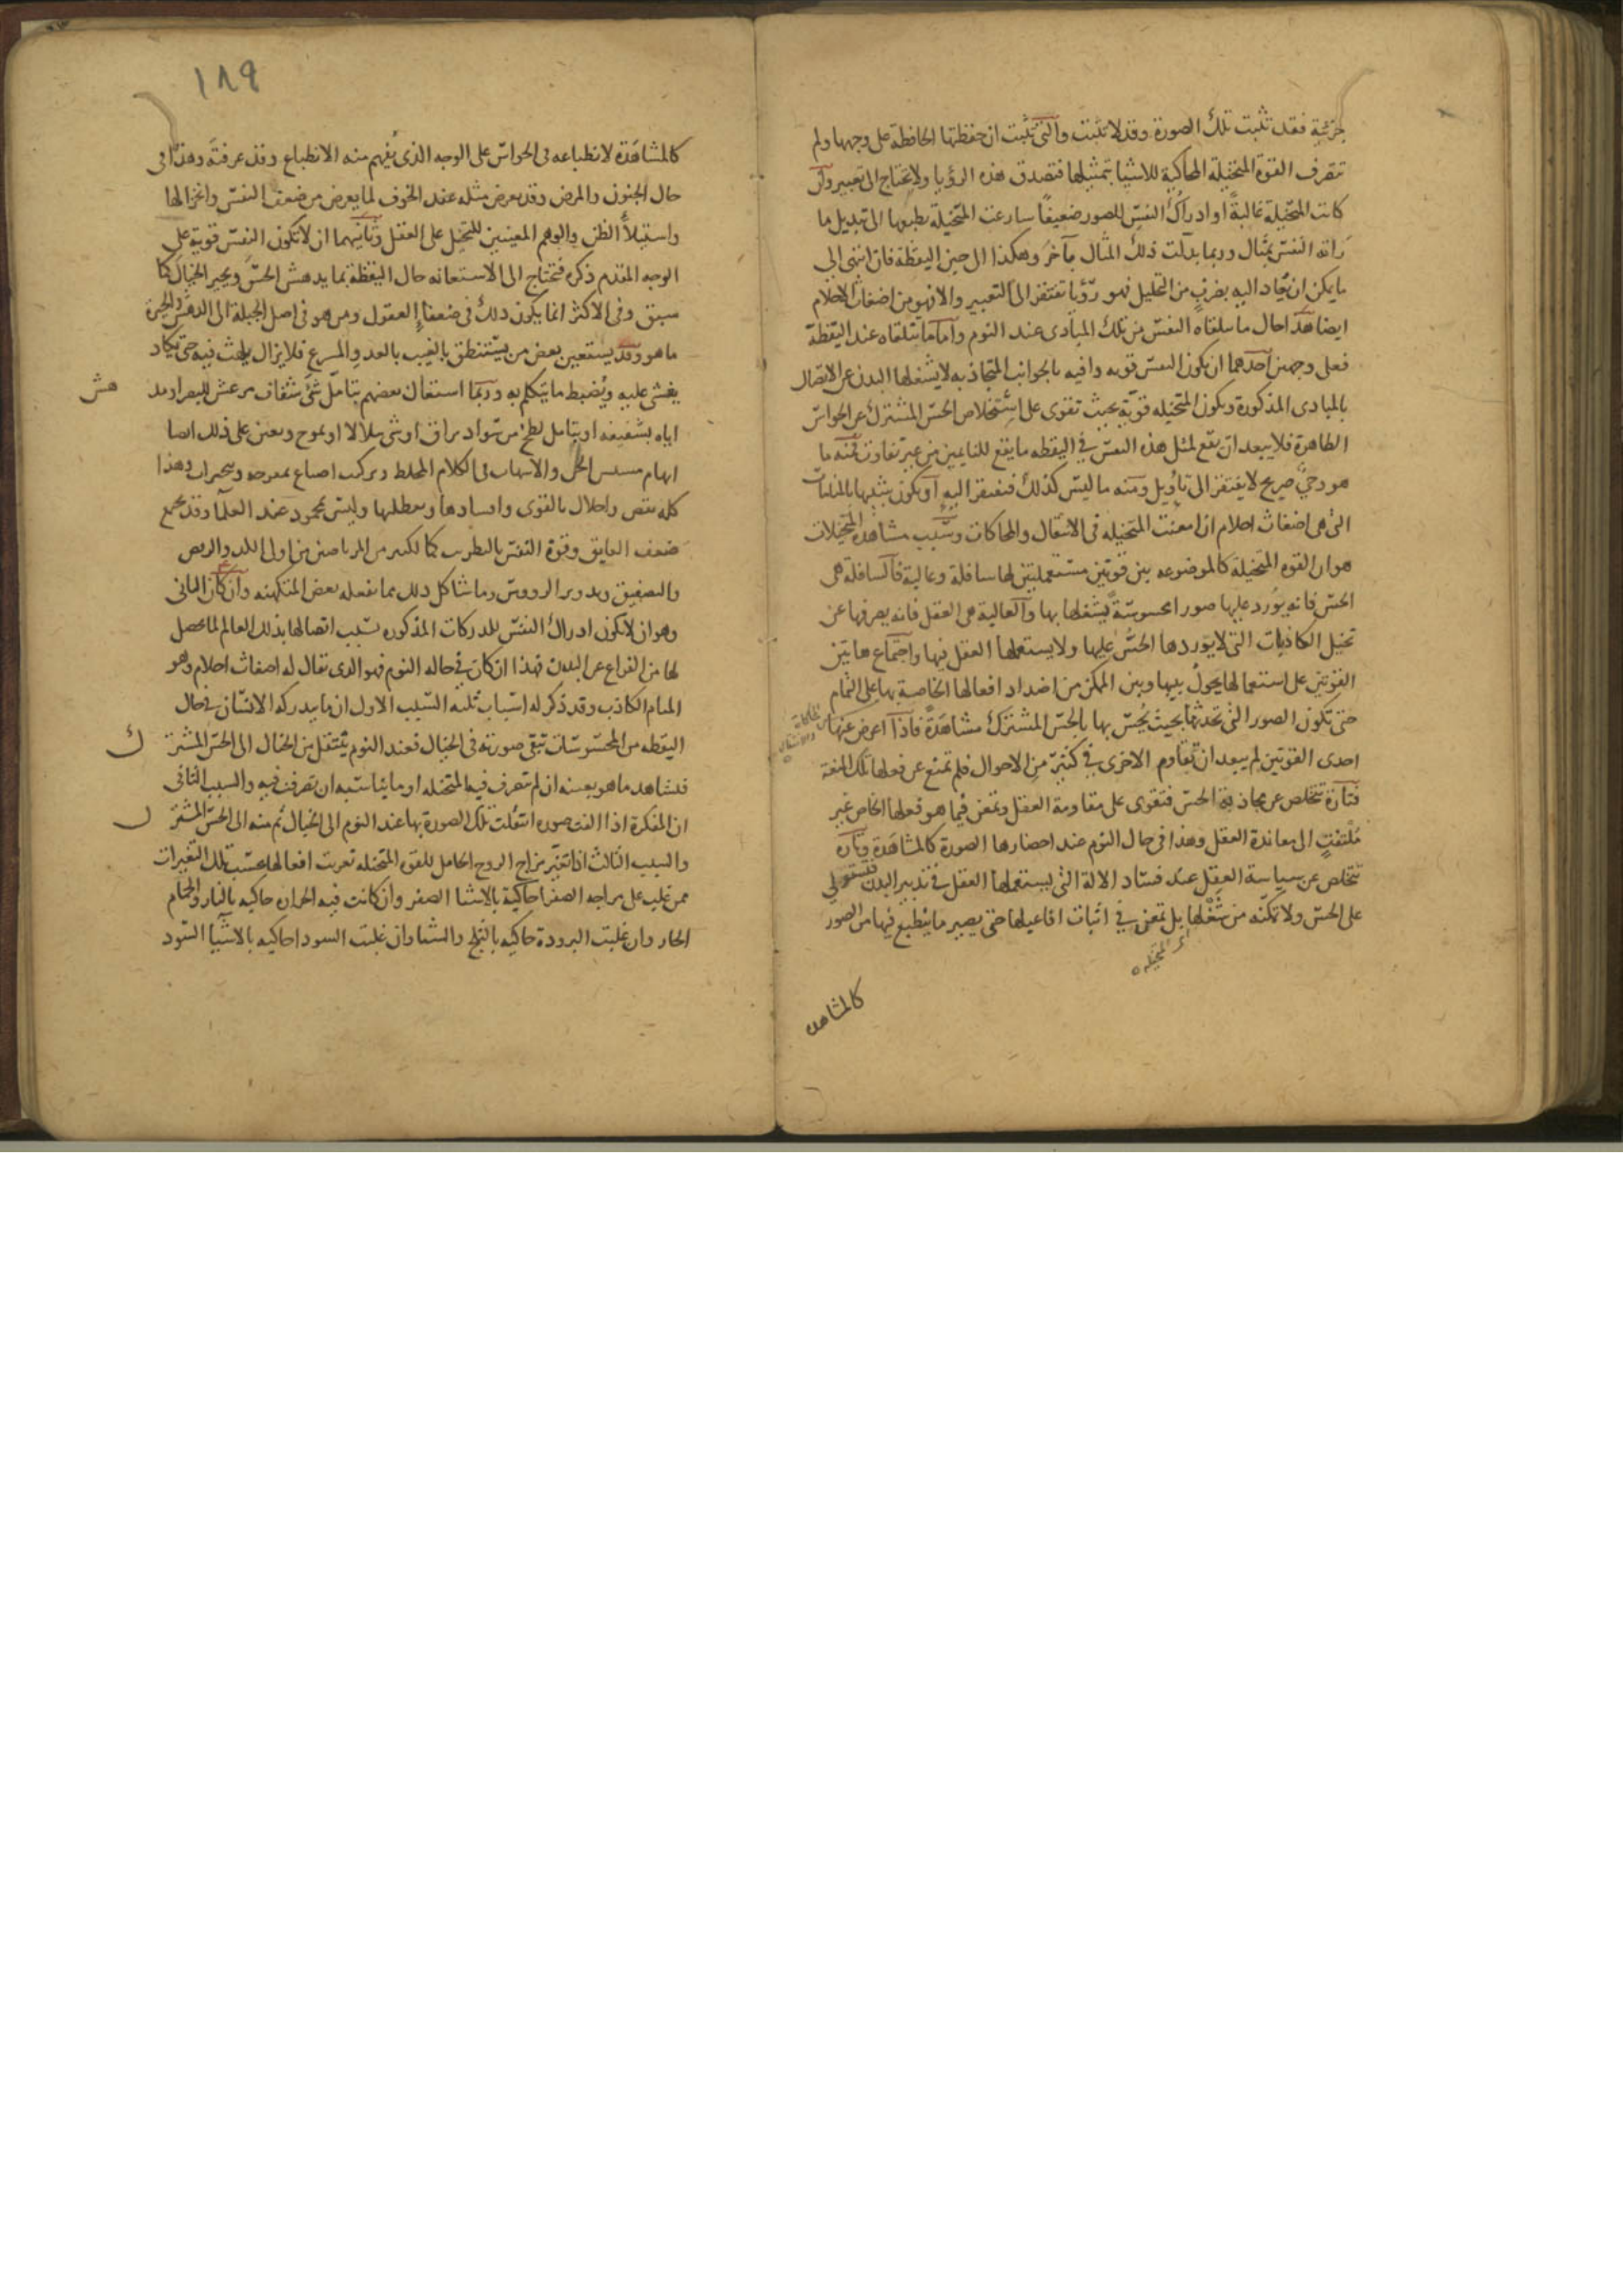 جزئية فقد تثبت تلك الصورة وقد لا تثبت والتى تثبت ان حفظتها الحافظة على وجهها ولم
تتصرف القوة المتخيلة المحاكية للاشيا بتمثيلها فتصدق هذه الرؤيا ولا يحتاج الى تعبير وان
كانت المتخيلة غالبةً او ادراك النفس للصور ضعيفًا سارعت المتخيلة بطبعها الى تبديل ما
راته النفس بمثال وربما بدلت ذلك المثال بآخر وهكذا الى حين اليقظة فان انتهى الى
ما يمكن ان يعاد اليه بضربٍ من التحليل فهو رؤيا تفتقر الى التعبير والا فهو من اضغاث الاحلام
ايضا هذا حال ما تتلقاه النفس من تلك المبادى عند النوم واما ما تتلقاه عند اليقظة
فعلى وجهين احدهما ان تكون النفس قويه وافيه بالجوانب المتجاذبه لا يشغلها البدن عن الاتصال
بالمبادى المذكورة وتكون المتخيله قوية بحيث تقوى على استخلاص الحس المشترك عن الحواس
الظاهرة فلا يبعد ان يقع لمثل هذه النفس فى اليقظه ما يقع للنايمين من غير تفاوت فمنه ما
هو وحى صريح لا يفتقر الى تاويل ومنه ما ليس كذلك فيفتقر اليه او يكون شبيها بالمنامات
التى هى اضغاث احلام ان امعنت المتخيله فى الانتقال والمحاكات وسبب مشاهدة المتخيلات
هو ان القوه المتخيلة كالموضوعه بين قوتين مستعملتين لها سافلة وعالية فالسافلة هى
الحس فانه يورد عليها صورا محسوسةً يشغلها بها والعالية هى العقل فانه يصرفها عن
تخيل الكاذبات التى لا يوردها الحسُ عليها ولا يستعملها العقل فيها واجتماع هاتين
القوتين على استعمالها يحولُ بينها وبين التمكن من اصدار افعالها الخاصة بها على التمام
حتى تكون الصور التى تحدثها بحيث يُحسّ بها بالحس المشترك مشاهدةً فاذا اعرض عنها
احدى القوتين لم يبعد ان تقاوم الاخرى فى كثير من الاحوال فلم تمتنع عن فعلها تلك المنعة
فتارة تتخلص عن مجاذبة الحس فتقوى على مقاومة العقل وتمعن فيما هو فعلها الخاص غير
مُلتفتٍ الى معاندة العقل وهذا فى حال النوم عند احضارها الصورة كالمشاهدة وتارة
تتخلص عن سياسة العقل عند فساد الالة التى يستعملها العقل فى تدبير البدن فتستولى
على الحس ولا تمكنه من شُغلها بل تمعن فى اثبات افاعيلها حتى يصير ما ينطبع فيها من الصور
اى المتخيله
كالمشاهده
١٨٩
كالمشاهَدة لانطباعه فى الحواس على الوجه الذى يُفهم منه الانطباع وقد عرفته وهذا فى
حال الجنون والمرض وقد يعرض مثله عند الخوف لما يعرض من ضعف النفس وانخزالها
واستيلأ الظن والوهم المعينين للتخيل على العقل وثانيهما ان لا تكون النفس قوية على
الوجه المقدم ذكره فتحتاج الى الاستعانه حال اليقظة بما يدهش الحسّ ويحير الخيال كما
سبق وفى الاكثر انما يكون ذلك فى ضعفاء العقول ومن هو فى اصل الجبلة الى الدهش والحيرة
ما هو وقد يستعين بعض من يستنطق بالغيب بالعدو المسرع فلا يزال يلهث فيه حتى يكاد
يغشى عليه ويُضبط ما يتكلم به وربما استعان بعضهم بتامل شىء شفاف مرعش للبصر او مدهش
اياه بشفيفه او بتامل لطخ من سواد براق او شى يتلالا او يموج ويعين على ذلك ايضا
ايهام مسيس الجن والاسهاب فى الكلام المخلط
كله نقص واخلال بالقوى وافسادها وتعطيلها وليس بمحمود عند العلما وقد يجمع
ضعف العايق وقوة النفس بالتطريب كما لكثير من المرتاضين من اولى الكد والرقص
والتصفيق وتدوير الرووس وما شاكل ذلك مما يفعله بعض المتكهنه وان كان الثانى
وهو ان لا تكون ادراك النفس للمدركات المذكوره بسبب اتصالها بذلك العالم لما يحصل
لها من الفراغ عن البدن فهذا ان كان فى حاله النوم فهو الذى يقال له اضغاث احلام وهو
المنام الكاذب وقد ذكر له اسباب ثلثه السبب الاول ان ما يدركه الانسان فى حال
اليقظه من المحسوسات تبقى صورته فى الخيال فعند النوم ينتقل من الخيال الى الحس المشترك
فيشاهد ما هو بعينه ان لم تتصرف فيه المتخيله او ما يناسبه ان تصرفت فيه والسبب الثانى
ان المفكرة اذا الفت صوره انتقلت تلك الصورة بها عند النوم الى الخيال ثم منه الى الحس المشترك
والسبب الثالث اذا تغير مزاج الروح الحامل للقوه المتخيله تغيرت افعالها بحسب تلك التغيرات
فمن غلب على مزاجه الصفرا حاكيه بالاشيا الصفر وان كانت فيه الحراره حاكيه بالنار والحمام
الحار وان غلبت البرودة حاكيه بالثلج والشتا وان غلبت السودا حاكيه بالاشيا السود